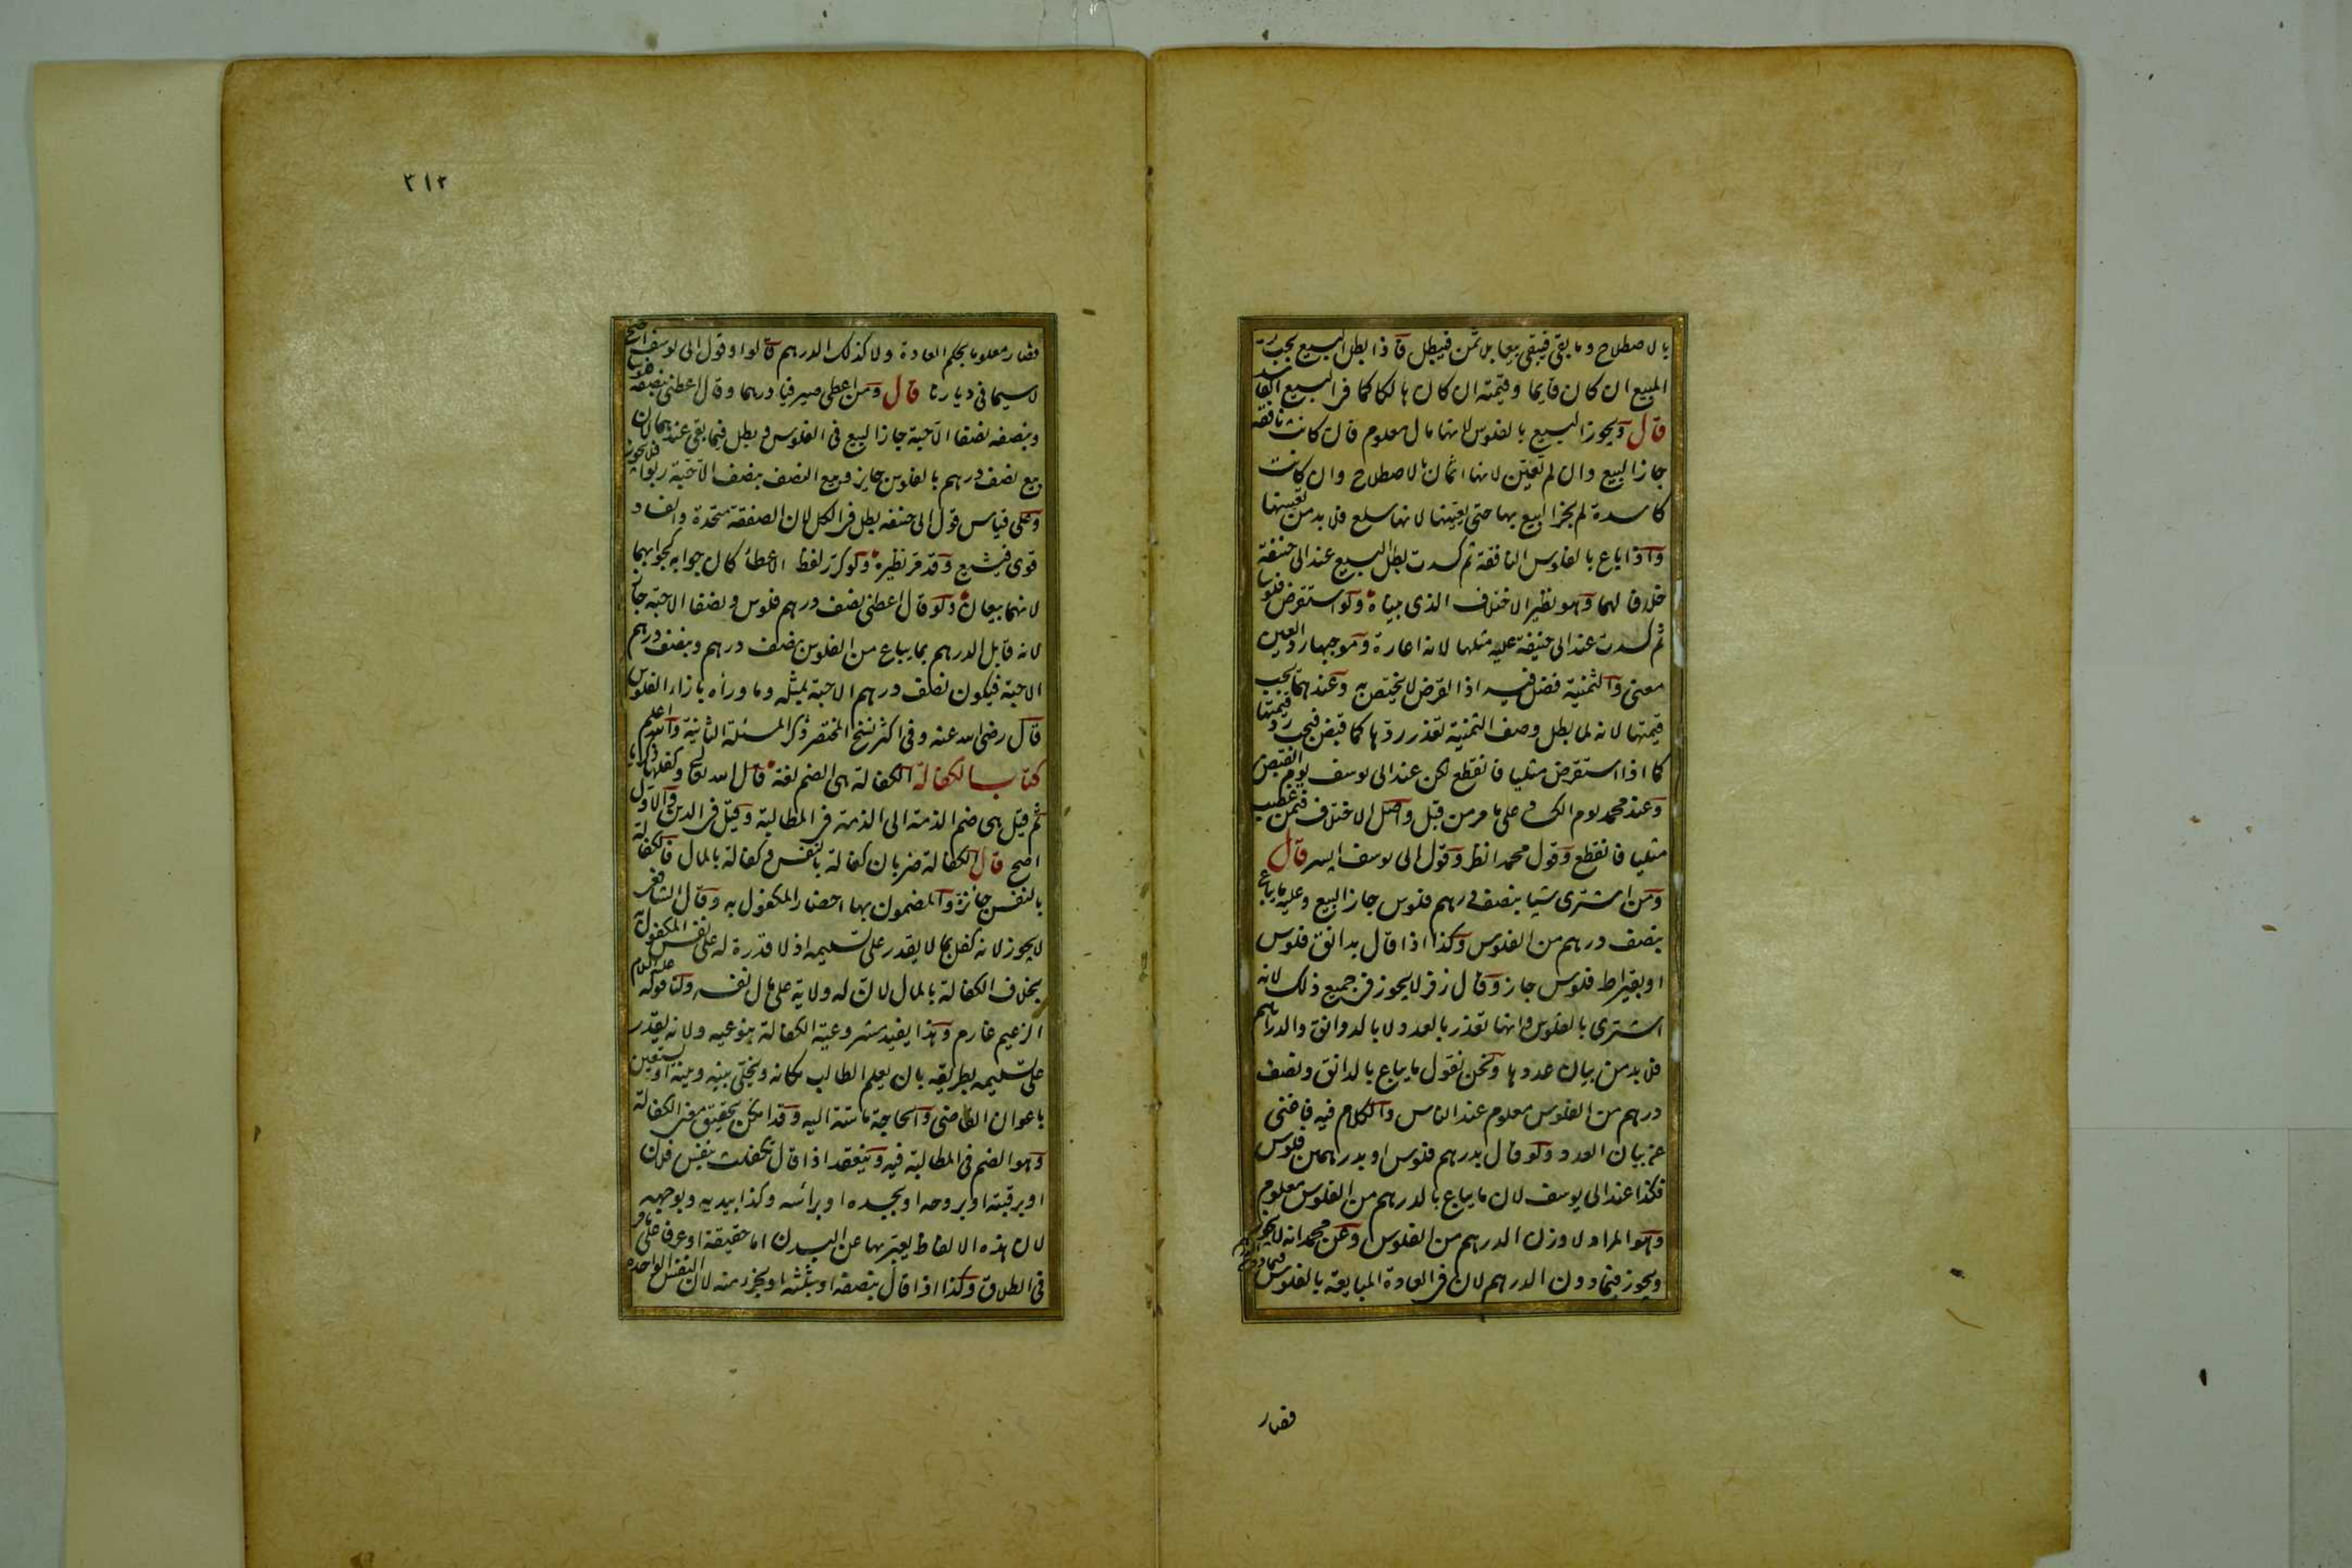 بالاصطلاح وما بقي فيبقي بيعا بلا ثمن فيبطل فاذا بطل البيع يجب رد
المبيع ان كان قايما وقيمته ان كان هالكا كما في البيع الفاسد
قال ويجوز البيع بالفلوس لانها مال معلوم فان كانت نافقة
جاز البيع وان لم تعين لانها اثمان بالاصطلاح وان كانت
كاسدة لم يجز البيع بها حتي يعينها لانها سلع فلابد من تعيينها
واذا باع بالفلوس النافقة ثم كسدت بطل البيع عند ابي حنيفة
خلافا لهما وهو نظير الاختلاف الذي بيناه ولو استقرض فلوسا
ثم كسدت عند ابي حنيفة عليه مثلها لانه اعارة وموجبها رد العين
معني والثمنية فضل فيه اذ القرض لا يختص به وعندهما يجب
قيمتها لانه لما بطل وصف الثمنية تعذر ردها كما قبض فيجب رد قيمتها
كما اذا استقرض مثليا فانقطع لكن عند ابي يوسف يوم القبض
وعند محمد يوم الكساد علي ما مر من قبل واصل الاختلاف فيمن غصب
مثليا فانقطع وقول محمد انظر وقول ابي يوسف ايسر قال
ومن اشتري شيا بنصف درهم فلوس جاز البيع وعليه ما يباع
بنصف درهم من الفلوس وكذا اذا قال بدانق فلوس
او بقيراط فلوس جاز وقال زفر لا يجوز في جميع ذلك لانه
اشتري بالفلوس وانها تقدر بالعدد لا بالدوانق والدراهم
فلابد من بيان عددها ونحن نقول ما يباع بالدانق ونصف
درهم من الفلوس معلوم عند الناس والكلام فيه فاغني
عن بيان العدد ولو قال بدرهم فلوس او بدرهمين فلوس
فكذا عند ابي يوسف لان ما يباع بالدرهم من الفلوس معلوم
وهو المراد لا وزن الدرهم من الفلوس وعن محمد انه لا يجوز
ويجوز فيما دون الدرهم لان في العادة المبايعة بالفلوس فيما دون الدرهم
فصار
٣١٢
فصار معلوما بحكم العادة ولا كذلك الدرهم قالوا وقول ابي يوسف اصح
لا سيما في ديارنا قال ومن اعطي صيرفيا درهما وقال اعطني بنصفه فلوسا
وبنصفه نصفا الا حبة جاز البيع في الفلوس وبطل فيما بقي عندهما لان
بيع نصف درهم بالفلوس جايز وبيع النصف بنصف الا حبة ربوا فلا يجوز
وعلي قياس قول ابي حنيفه بطل في الكل لان الصفقة متحدة والفساد
قوي فيشيع وقد مر نظيره ولو كرر لفظ الاعطاء كان جوابه كجوابهما
لانهما بيعان ولو قال اعطني نصف درهم فلوس ونصفا الا حبة جاز
لانه قابل الدرهم بما يباع من الفلوس بنصف درهم وبنصف درهم
الا حبة فيكون نصف درهم الا حبة بمثله وما وراءه بازاء الفلوس
قال رضي الله عنه وفي اكثر نسخ المختصر ذكر المسئلة الثانية والله اعلم
كتاب الكفالة الكفالة هي الضم لغة قال الله تعالي وكفلها زكريا
ثم قيل هي ضم الذمة الي الذمة في المطالبة وقيل في الدين والاول
اصح قال الكفالة ضربان كفالة بالنفس وكفالة بالمال فالكفالة
بالنفس جائزة والمضمون بها احضار المكفول به وقال الشافعي
لا يجوز لانه كفل بما لا يقدر علي تسليمه اذ لا قدرة له علي نفس المكفول به
بخلاف الكفالة بالمال لان له ولاية علي مال نفسه ولنا قوله عليه السلام
الزعيم غارم وهذا يفيد مشروعية الكفالة بنوعيه ولانه يقدر
علي تسليمه بطريقه بان يعلم الطالب مكانه ويخلي بينه وبينه او يستعين
باعوان القاضي والحاجة ماسة اليه وقد امكن تحقيق معني الكفالة
وهو الضم في المطالبة فيه وينعقد اذا قال تكفلت بنفس فلان
او برقبته او بروحه او بجسده او برأسه وكذا ببدنه وبوجهه
لان هذه الالفاظ يعبر بها عن البدن اما حقيقة او عرفا علي ما مر
في الطلاق وكذا اذا قال بنصفه او بثلثه او بجزء منه لان النفس الواحدة